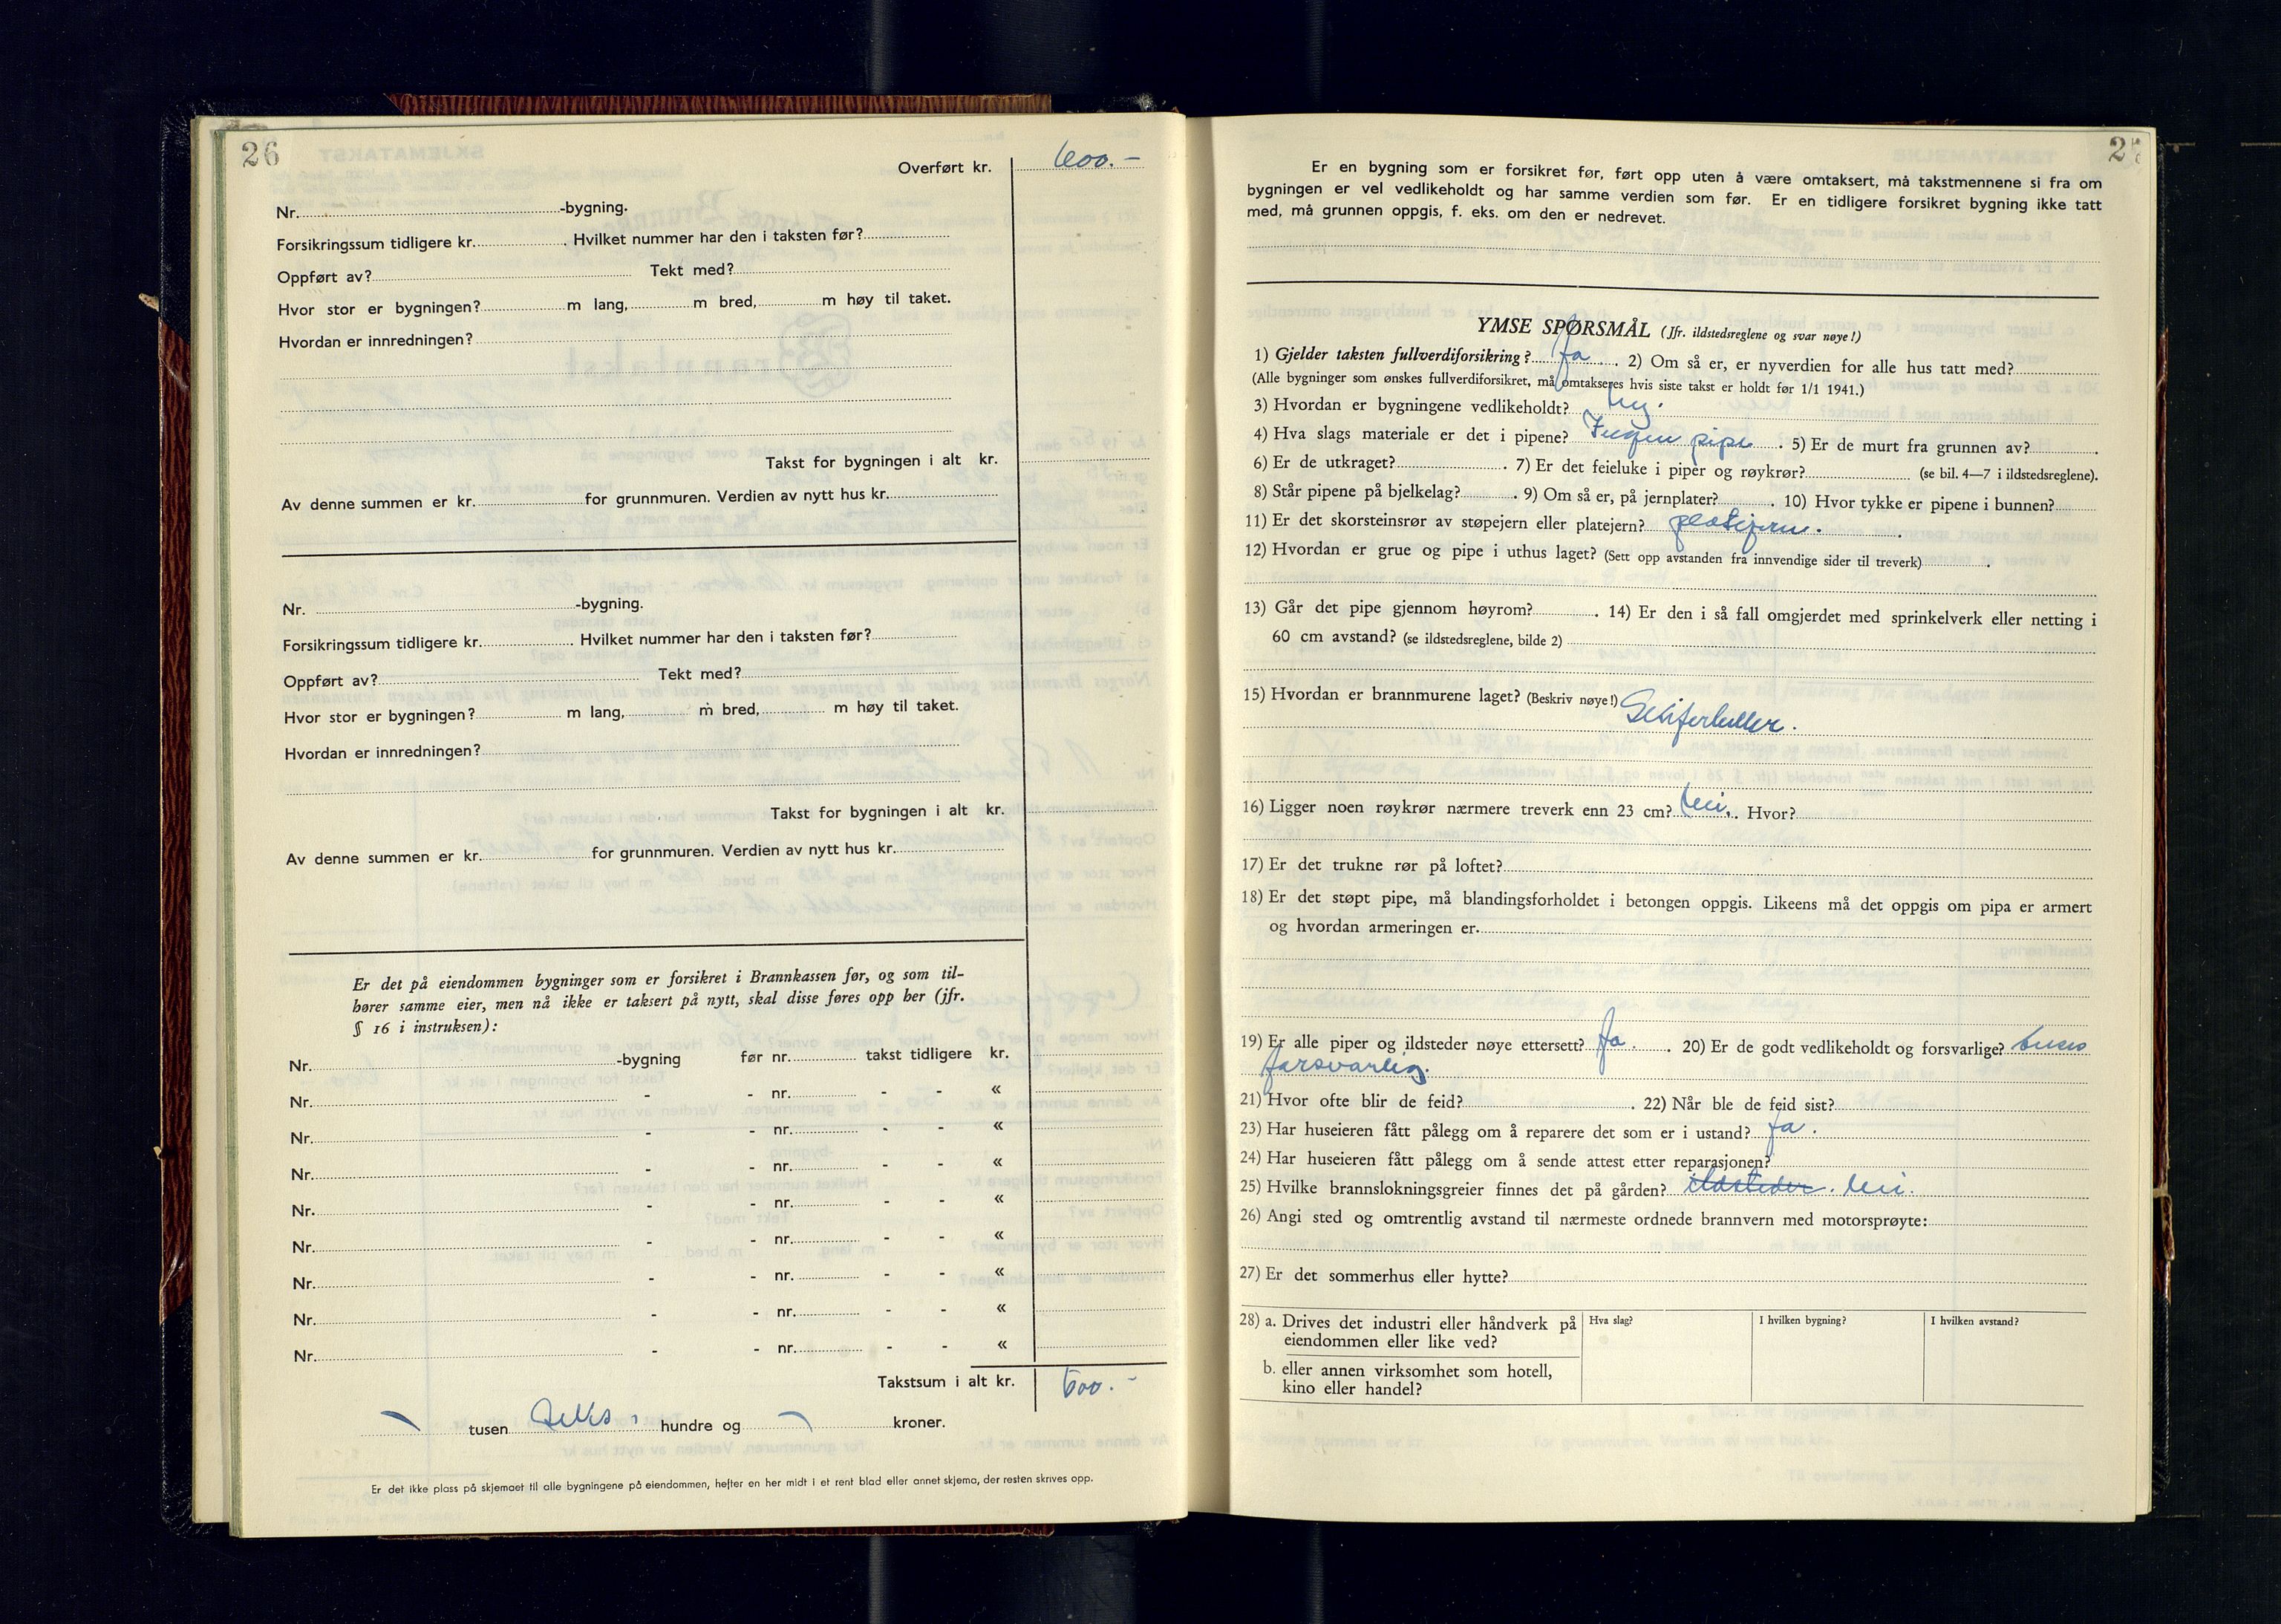 26
Overført kr. 600.-
Nr. -bygning.
Forsikringssum tidligere kr. . Hvilket nummer har den i taksten før?
Oppført av? Tekt med?
Hvor stor er bygningen? m lang, m bred, m høy til taket.
Hvordan er innredningen?
Takst for bygningen i alt kr.
Av denne summen er kr. for grunnmuren. Verdien av nytt hus kr.
Nr. -bygning.
Forsikringssum tidligere kr. . Hvilket nummer har den i taksten før?
Oppført av? Tekt med?
Hvor stor er bygningen? m lang, m bred, m høy til taket.
Hvordan er innredningen?
Takst for bygningen i alt kr.
Av denne summen er kr. for grunnmuren. Verdien av nytt hus kr.
Er det på eiendommen bygninger som er forsikret i Brannkassen før, og som til-
hører samme eier, men nå ikke er taksert på nytt, skal disse føres opp her (jfr.
§ 16 i instruksen):
Nr. -bygning før nr. takst tidligere kr.
Nr. - - nr. - - «
Nr. - - nr. - - «
Nr. - - nr. - - «
Nr. - - nr. - - «
Nr. - - nr. - - «
Nr. - - nr. - - «
Nr. - - nr. - - «
Nr. - - nr. - - «
Takstsum i alt kr. 600.-
- tusen seks hundre og - kroner.
Er det ikke plass på skjemaet til alle bygningene på eiendommen, hefter en her midt i et rent blad eller annet skjema, der resten skrives opp.
Er en bygning som er forsikret før, ført opp uten å være omtaksert, må takstmennene si fra om
bygningen er vel vedlikeholdt og har samme verdien som før. Er en tidligere forsikret bygning ikke tatt
med, må grunnen oppgis, f. eks. om den er nedrevet.
YMSE SPØRSMÅL (Jfr. ildstedsreglene og svar nøye!)
1) Gjelder taksten fullverdiforsikring? Ja . 2) Om så er, er nyverdien for alle hus tatt med?
(Alle bygninger som ønskes fullverdiforsikret, må omtakseres hvis siste takst er holdt før 1/1 1941.)
3) Hvordan er bygningene vedlikeholdt? Ny.
4) Hva slags materiale er det i pipene? Ingen pipe . 5) Er de murt fra grunnen av? .
6) Er de utkraget? . 7) Er det feieluke i piper og røykrør? (se bil. 4—7 i ildstedsreglene).
8) Står pipene på bjelkelag? . 9) Om så er, på jernplater? . 10) Hvor tykke er pipene i bunnen?
11) Er det skorsteinsrør av støpejern eller platejern? platejern. .
12) Hvordan er grue og pipe i uthus laget? (Sett opp avstanden fra innvendige sider til treverk) .
13) Går det pipe gjennom høyrom? . 14) Er den i så fall omgjerdet med sprinkelverk eller netting i
60 cm avstand? (se ildstedsreglene, bilde 2)
15) Hvordan er brannmurene laget? (Beskriv nøye!) Skiferheller.
16) Ligger noen røykrør nærmere treverk enn 23 cm? Nei. . Hvor?
17) Er det trukne rør på loftet?
18) Er det støpt pipe, må blandingsforholdet i betongen oppgis. Likeens må det oppgis om pipa er armert
og hvordan armeringen er.
19) Er alle piper og ildsteder nøye ettersett? Ja . 20) Er de godt vedlikeholdt og forsvarlige?
forsvarlig.
21) Hvor ofte blir de feid? . 22) Når ble de feid sist?
23) Har huseieren fått pålegg om å reparere det som er i ustand? Ja.
24) Har huseieren fått pålegg om å sende attest etter reparasjonen?
25) Hvilke brannslokningsgreier finnes det på gården? ildsteder. Nei.
26) Angi sted og omtrentlig avstand til nærmeste ordnede brannvern med motorsprøyte:
27) Er det sommerhus eller hytte?
28) a. Drives det industri eller håndverk på
eiendommen eller like ved?
Hva slag? I hvilken bygning? I hvilken avstand?
b. eller annen virksomhet som hotell,
kino eller handel?